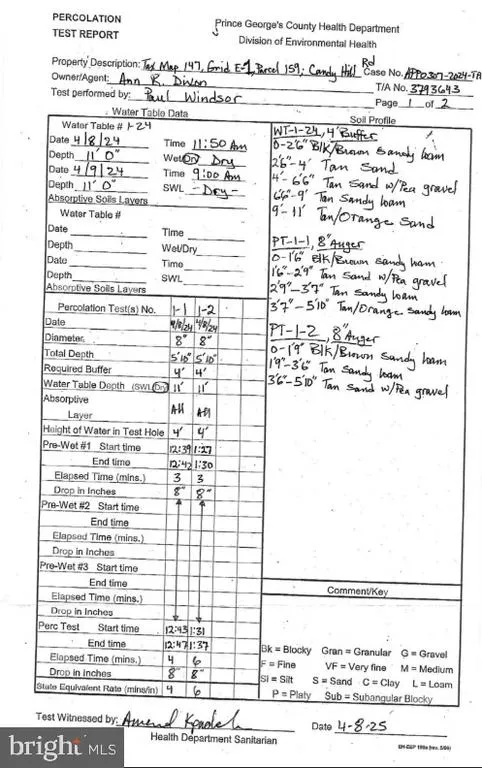 PERCOLATION
TEST REPORT
Prince George's County Health Department
Division of Environmental Health
Property Description: Tax Map 147, Grid E-1, Parcel 159; Candy Hill Rd
Case No. APP0307-2024-TA
Owner/Agent: Ann R. Dixon
T/A No. 3793643
Test performed by: Paul Windsor
Page 1 of 2
Water Table Data
Water Table # 1-24
Date 4/8/24 Time 11:50 AM
Depth 11' 0" Wet/Dry Dry
Date 4/9/24 Time 9:00 AM
Depth 11' 0" SWL - Dry -
Absorptive Soils Layers
Water Table #
Date Time
Depth Wet/Dry
Date Time
Depth SWL
Absorptive Soils Layers
Percolation Test(s) No. 1-1 1-2
Date 4/8/24 4/8/24
Diameter 8" 8"
Total Depth 5'10" 5'10"
Required Buffer 4' 4'
Water Table Depth (SWL/Dry) 11' 11'
Absorptive
Layer All All
Height of Water in Test Hole 4' 4'
Pre-Wet #1 Start time 12:39 1:27
End time 12:42 1:30
Elapsed Time (mins.) 3 3
Drop in Inches 8" 8"
Pre-Wet #2 Start time
End time
Elapsed Time (mins.)
Drop in Inches
Pre-Wet #3 Start time
End time
Elapsed Time (mins.)
Drop in Inches
Perc Test Start time 12:43 1:31
End time 12:47 1:37
Elapsed Time (mins.) 4 6
Drop in Inches 8" 8"
State Equivalent Rate (mins/in) 4 6
Soil Profile
WT-1-24, 4' Buffer
0-2'6" Blk/Brown Sandy loam
2'6"-4' Tan Sand
4'-6'6" Tan Sand w/Pea gravel
6'6"-9' Tan Sandy loam
9'-11' Tan/Orange Sand
PT-1-1, 8" Auger
0-1'6" Blk/Brown sandy loam
1'6"-2'9" Tan Sand w/Pea gravel
2'9"-3'7" Tan Sandy loam
3'7"-5'10" Tan/Orange Sandy loam
PT-1-2, 8" Auger
0-1'9" Blk/Brown Sandy loam
1'9"-3'6" Tan Sandy loam
3'6"-5'10" Tan Sand w/Pea gravel
Comment/Key
Bk = Blocky Gran = Granular G = Gravel
F = Fine VF = Very fine M = Medium
Si = Silt S = Sand C = Clay L = Loam
P = Platy Sub = Subangular Blocky
Test Witnessed by:
Date 4-8-25
Health Department Sanitarian
bright MLS